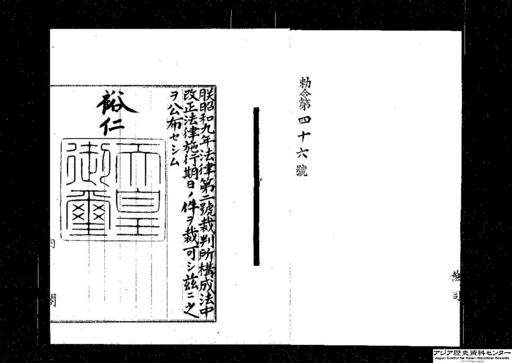 勅令第四十六號
朕昭和九年法律第二號裁判所構成法中
改正法律施行期日ノ件ヲ裁可シ茲ニ之
ヲ公布セシム
裕仁
天皇
御璽
内閣
アジア歴史資料センター
Japan Center for Asian Historical Records